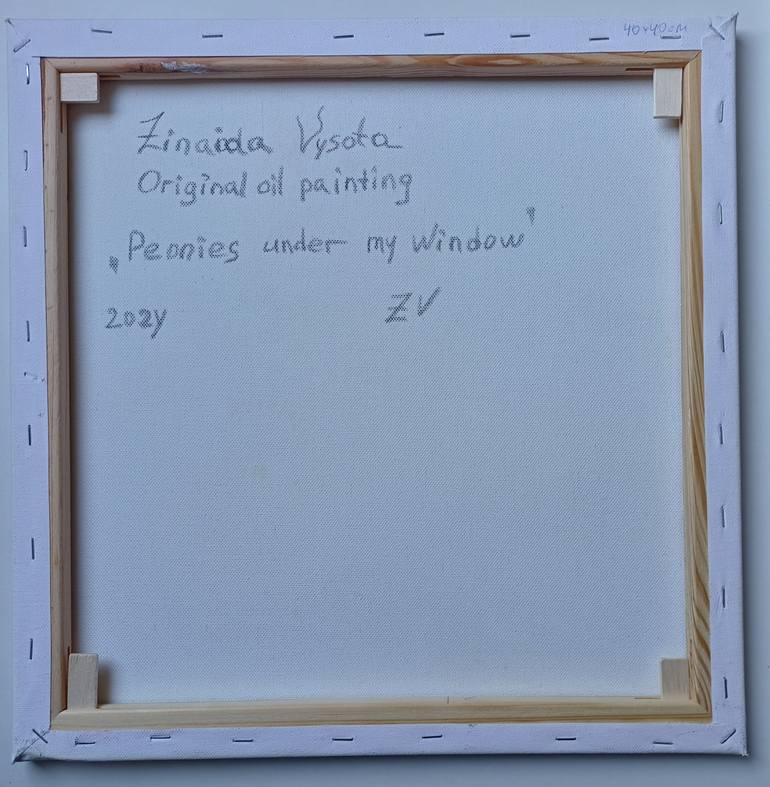 40×40см
Zinaida Vysota
Original oil painting
„Peonies under my window"
2024 ZV